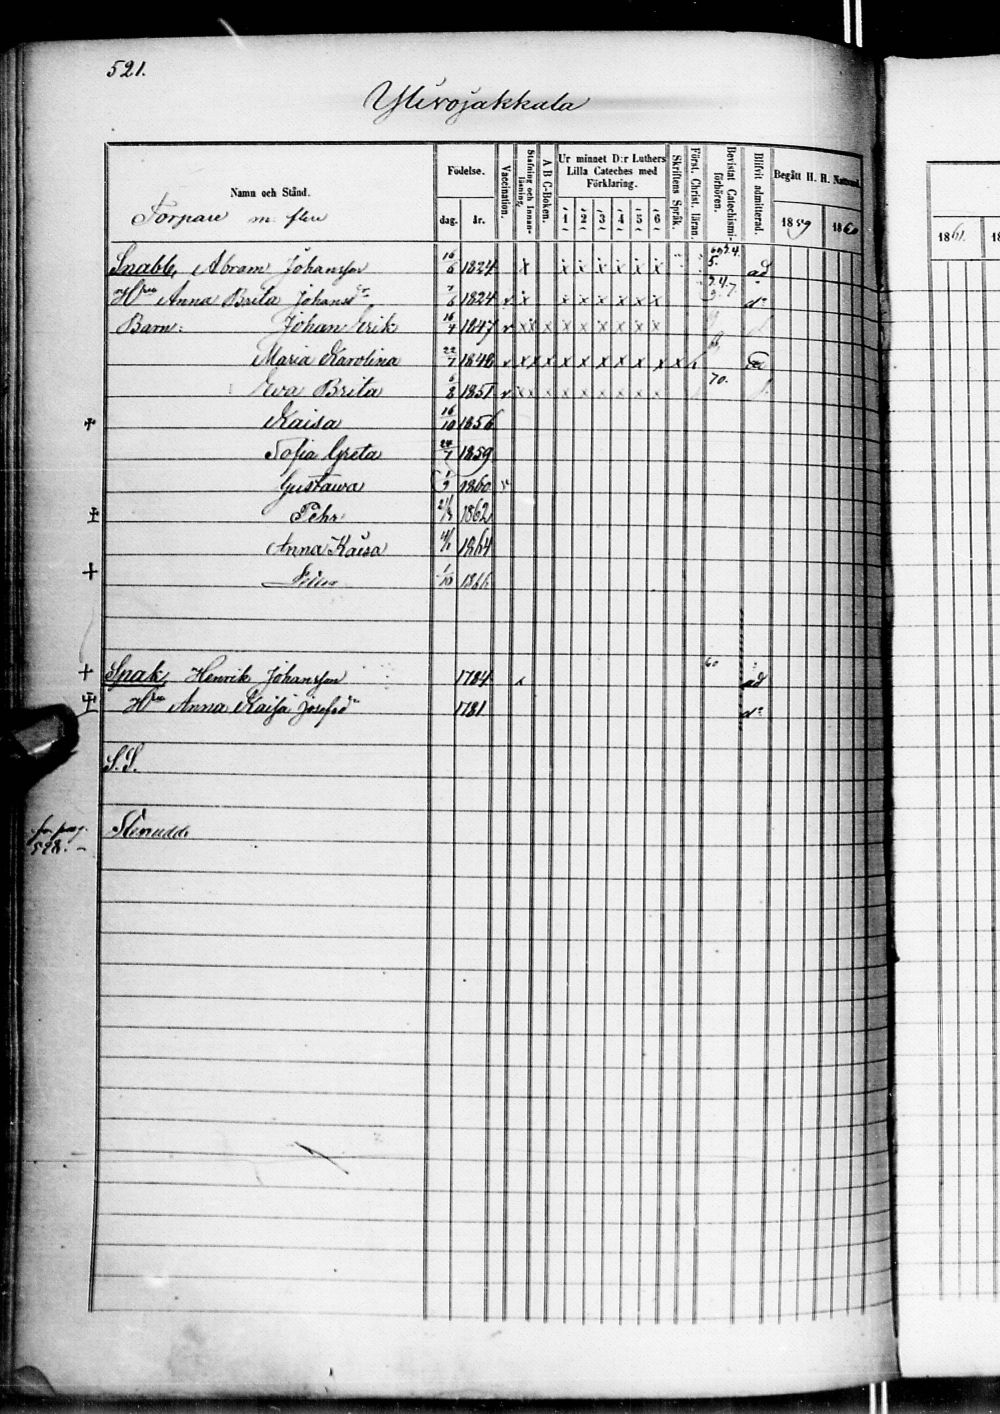 521.
Ylivojakkala
Namn och Stånd.
Torpare m. flere
Födelse.
dag. år.
Vaccination.
Stafning och Innanläsning.
A B C-Boken.
Ur minnet D:r Luthers Lilla Cateches med Förklaring.
1 2 3 4 5 6
Skriftens Språk.
Först. Christ. läran.
Bevistat Catechismiförhören.
Blifvit admitterad.
Begått H. H. Nattvard.
1859 1860
1861
Snabb, Abram Johansson 16/6 1824 x x x x x x x 5. ad
Hru Anna Brita Johansdr 1824 v x x x x x x x do
Barn: Johan Erik 16/4 1847 v x x x x x x x x x
Maria Karolina 22/7 1848 v x x x x x x x x x x x
Eva Brita 6/8 1851 v x x x x x x x x x 70.
Kaisa 16/10 1856
Sofia Greta 1859
Gustawa 1860 v
Pehr 1862
Anna Kaisa 1864
1/10 1866
Spak, Henrik Johansson 1784 x 60 ad
Hru Anna Kaisa Josefsdr 1781 do
S.S.
fr. pag. 528. Stenudd